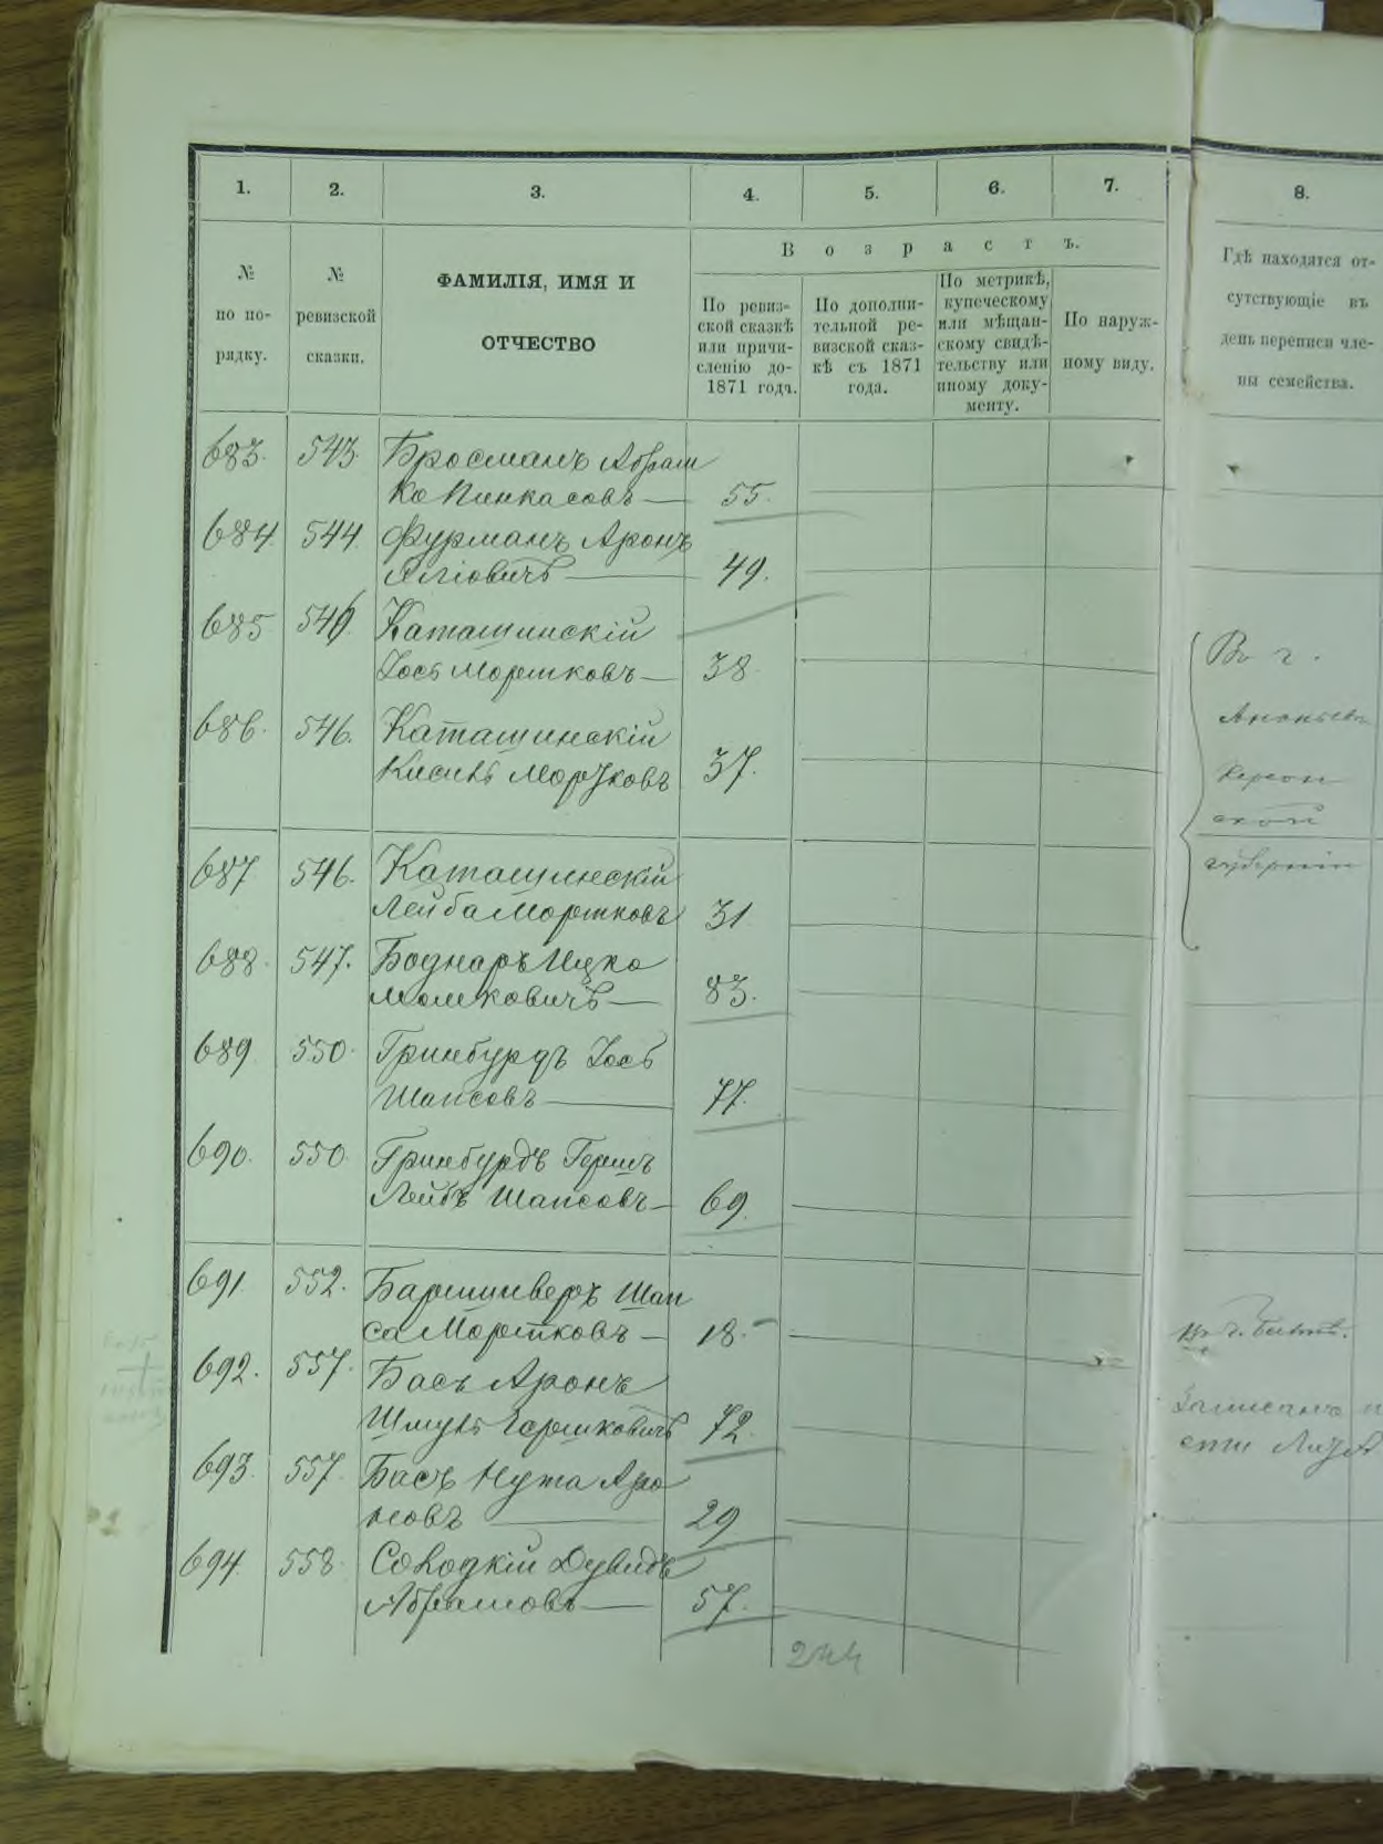 1.
2.
3.
4.
5.
6.
7.
8.
№
по по-
рядку.
№
ревизской
сказки.
ФАМИЛІЯ, ИМЯ И
ОТЧЕСТВО
Возрастъ.
По ревиз-
ской сказкѣ
или причи-
сленію до
1871 года.
По дополни-
тельной ре-
визской сказ-
кѣ съ 1871
года.
По метрикѣ,
купеческому
или мѣщан-
скому свидѣ-
тельству или
иному доку-
менту.
По наруж-
ному виду.
Гдѣ находятся от-
сутствующіе въ
день переписи чле-
ны семейства.
683. 543. Бросманъ Абраш
ко Пинкасовъ 55.
684. 544. Фурманъ Аронъ
49.
685 546. Каташинскій
Іось Моршковъ 38.
686. 546. Каташинскій
Кисиль Моршковъ 37.
Въ г.
Ананьевѣ
Херсон
ской
губерніи
687 546. Каташинскій
Лейба Моршковъ 31
688. 547. Боднаръ Ицко
Мошковичъ 83.
689. 550. Гринбурдъ Іось
Шапсовъ 77.
690. 550. Гринбурдъ Гершъ
Лейбъ Шапсовъ 69.
691. 552. Баршинверъ Шап
са Моршковъ 18.
Въ г.
692. 557. Басъ Аронъ
Шмуль Гершковичъ 72.
Записанъ
693. 557. Басъ Нута Аро
новъ 29
694. 558. Солодкій Дувидъ
Абрамовъ 57.
244